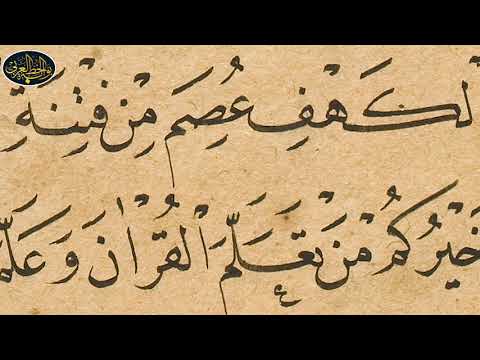 لكَهْفِ عُصِمَ مِنْ فِتْنَةِ
خَيْرُكُمْ مَنْ تَعَلَّمَ الْقُرْاٰنَ وَعَلَّمَ